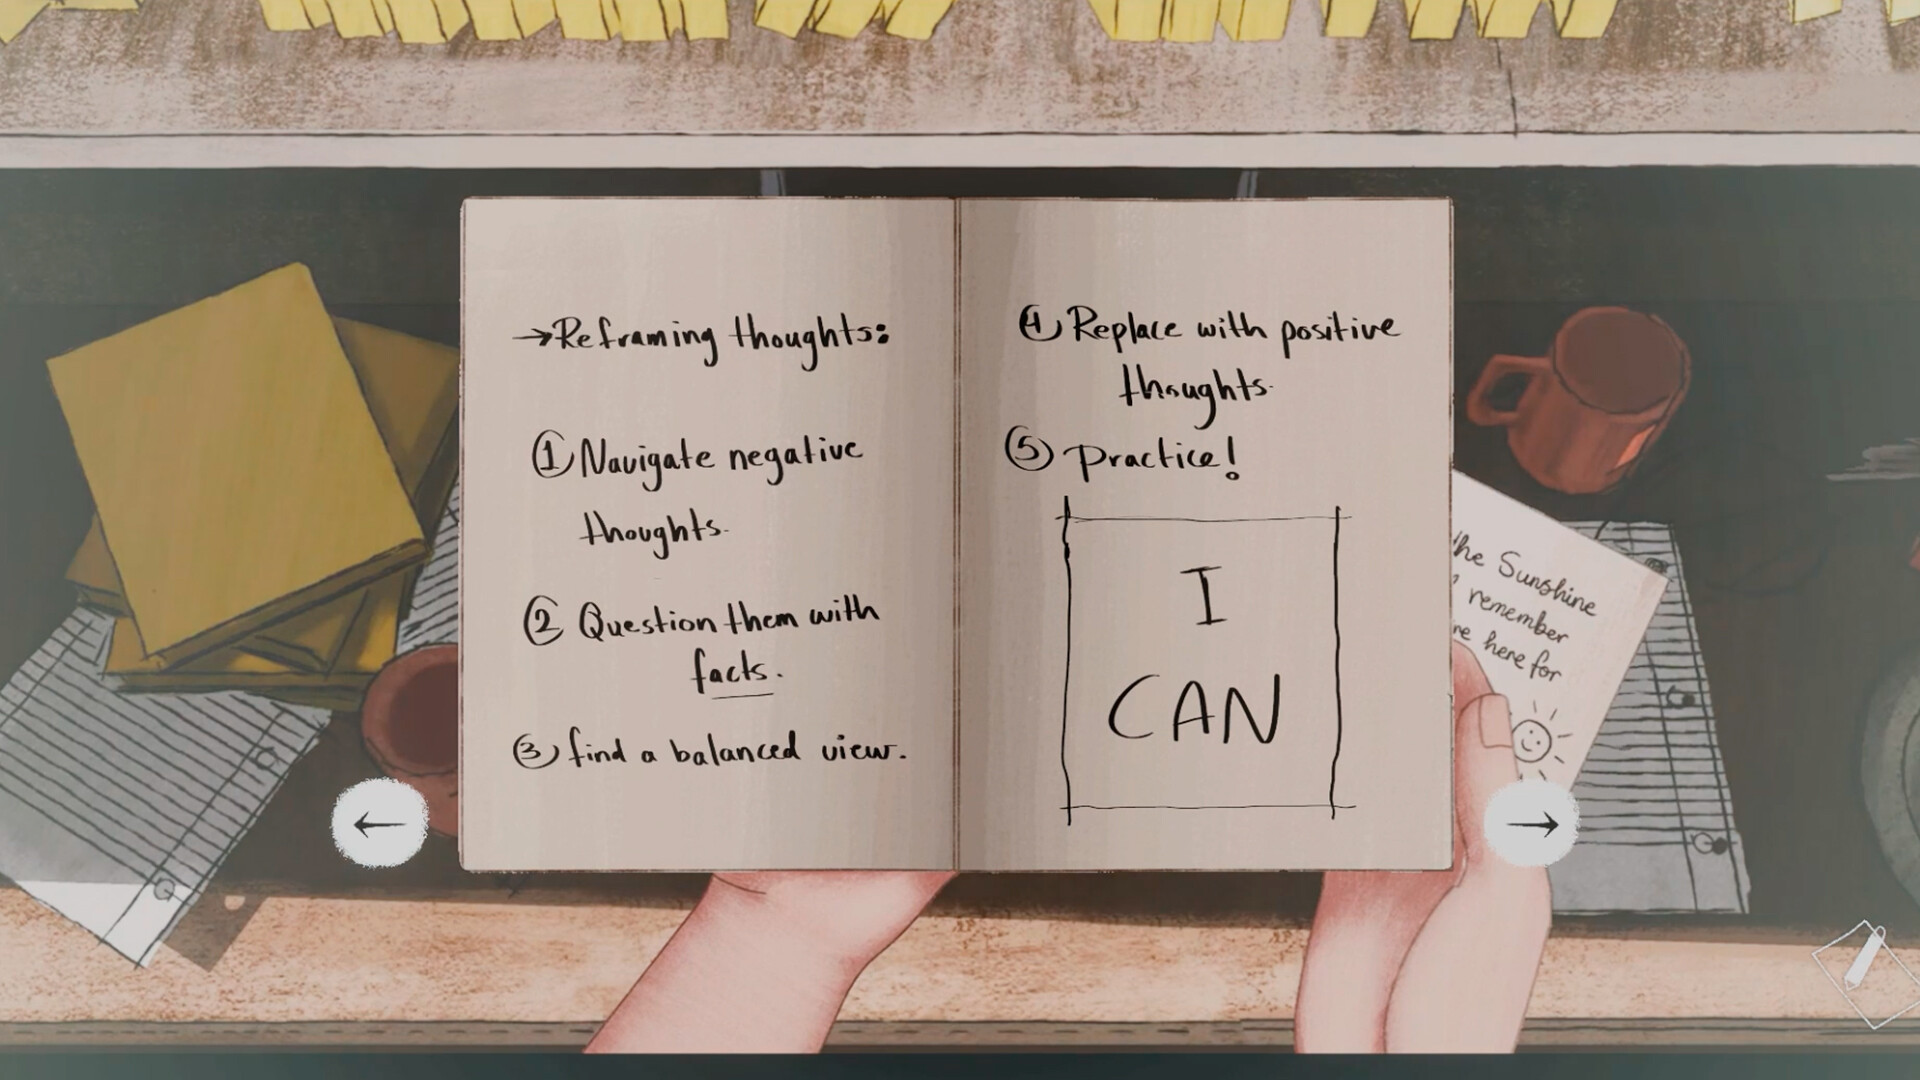 →Reframing thoughts:
① Navigate negative
thoughts.
② Question them with
facts.
③ find a balanced view.
④ Replace with positive
thoughts.
⑤ practice!
I
CAN
the Sunshine
remember
here for